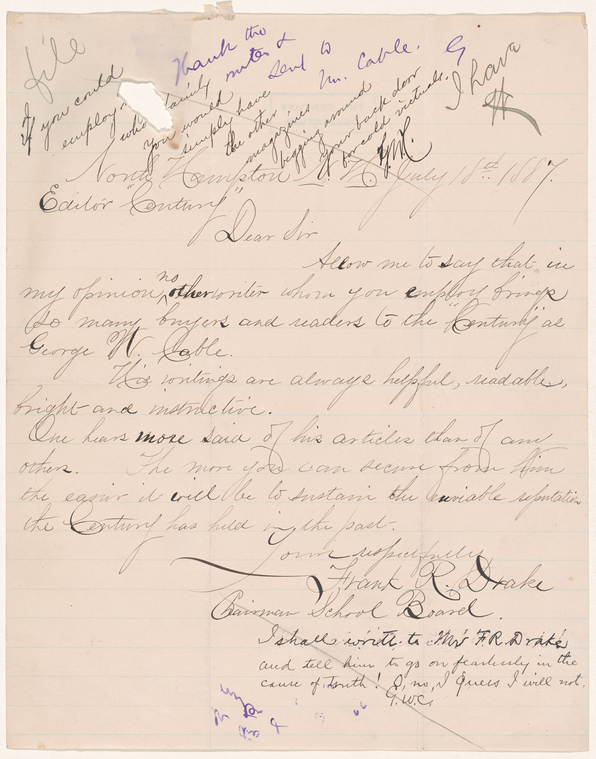 file
Thank the
writer &
send to
Mr. Cable. G
I have
If you could
employ
whole family
you would
simply have
the other
magazines
begging around
your back door
for cold victuals.
North Hampton N. H. July 18th 1887.
Editor "Century"
Dear Sir
Allow me to say that in
my opinion, no other writer whom you employ brings
so many buyers and readers to the "Century" as
George W. Cable.
His writings are always helpful, readable,
bright and instructive.
One hears more said of his articles than of any
others. The more you can secure from him
the easier it will be to sustain the enviable reputation
the Century has held in the past.
Yours respectfully
Frank R. Drake
Chairman School Board.
I shall write to Mr F. R. Drake
and tell him to go on fearlessly in the
cause of truth! O, no, I guess I will not.
G.W.C.